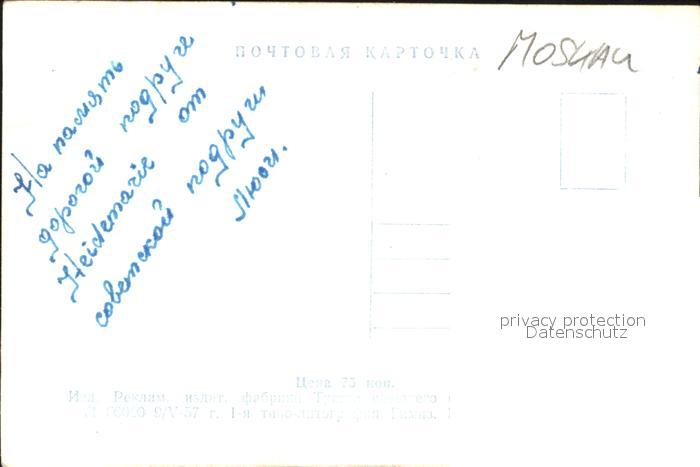 ПОЧТОВАЯ КАРТОЧКА
MOSKAU
На память
дорогой подруге
Heidemarie от
советской подруги
Любы.
privacy protection
Datenschutz
Цена 75 коп.
Изд. Реклам. издат. фабрики
9/V-57 г. 1-я типо-литография